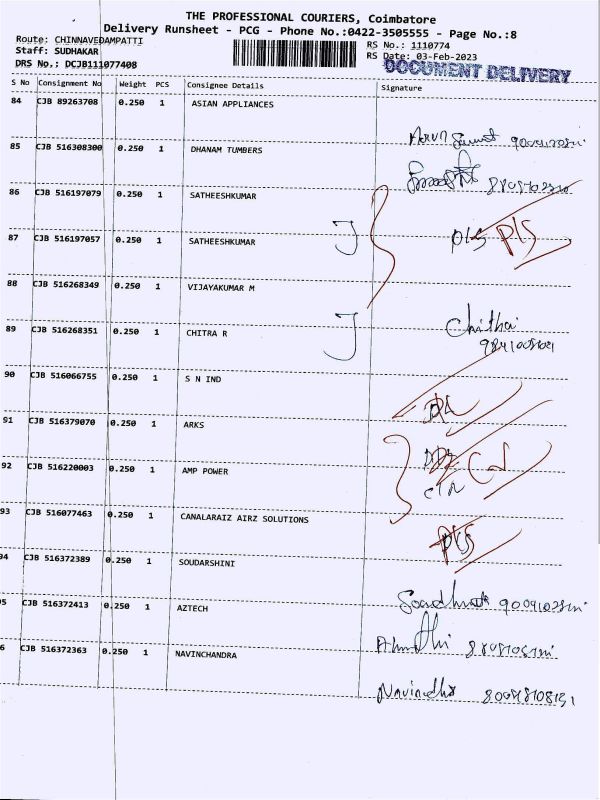 THE PROFESSIONAL COURIERS, Coimbatore
Delivery Runsheet - PCG - Phone No.:0422-3505555 - Page No.:8
Route: CHINNAVEDAMPATTI
RS No.: 1110774
Staff: SUDHAKAR
RS Date: 03-Feb-2023
DRS No.: DCJB111077408
DOCUMENT DELIVERY
S No Consignment No Weight PCS Consignee Details Signature
84 CJB 89263708 0.250 1 ASIAN APPLIANCES
85 CJB 516308300 0.250 1 DHANAM TUMBERS
86 CJB 516197079 0.250 1 SATHEESHKUMAR
87 CJB 516197057 0.250 1 SATHEESHKUMAR J Pls Pls
88 CJB 516268349 0.250 1 VIJAYAKUMAR M
89 CJB 516268351 0.250 1 CHITRA R J Chithai
90 CJB 516066755 0.250 1 S N IND
91 CJB 516379070 0.250 1 ARKS
92 CJB 516220003 0.250 1 AMP POWER
93 CJB 516077463 0.250 1 CANALARAIZ AIRZ SOLUTIONS
94 CJB 516372389 0.250 1 SOUDARSHINI Pls
5 CJB 516372413 0.250 1 AZTECH
6 CJB 516372363 0.250 1 NAVINCHANDRA